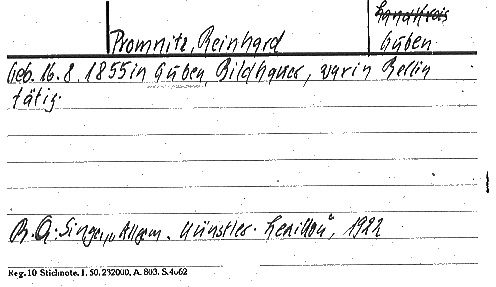 Landkreis
Promnitz, Reinhard
Guben
Geb. 16. 8. 1855 in Guben, Bildhauer, war in Berlin
tätig.
B. A.: Singer, "Allgem. Künstler-Lexikon", 1922
Reg. 10 Stichnote. I. 50. 232000. A. 803. S. 4062